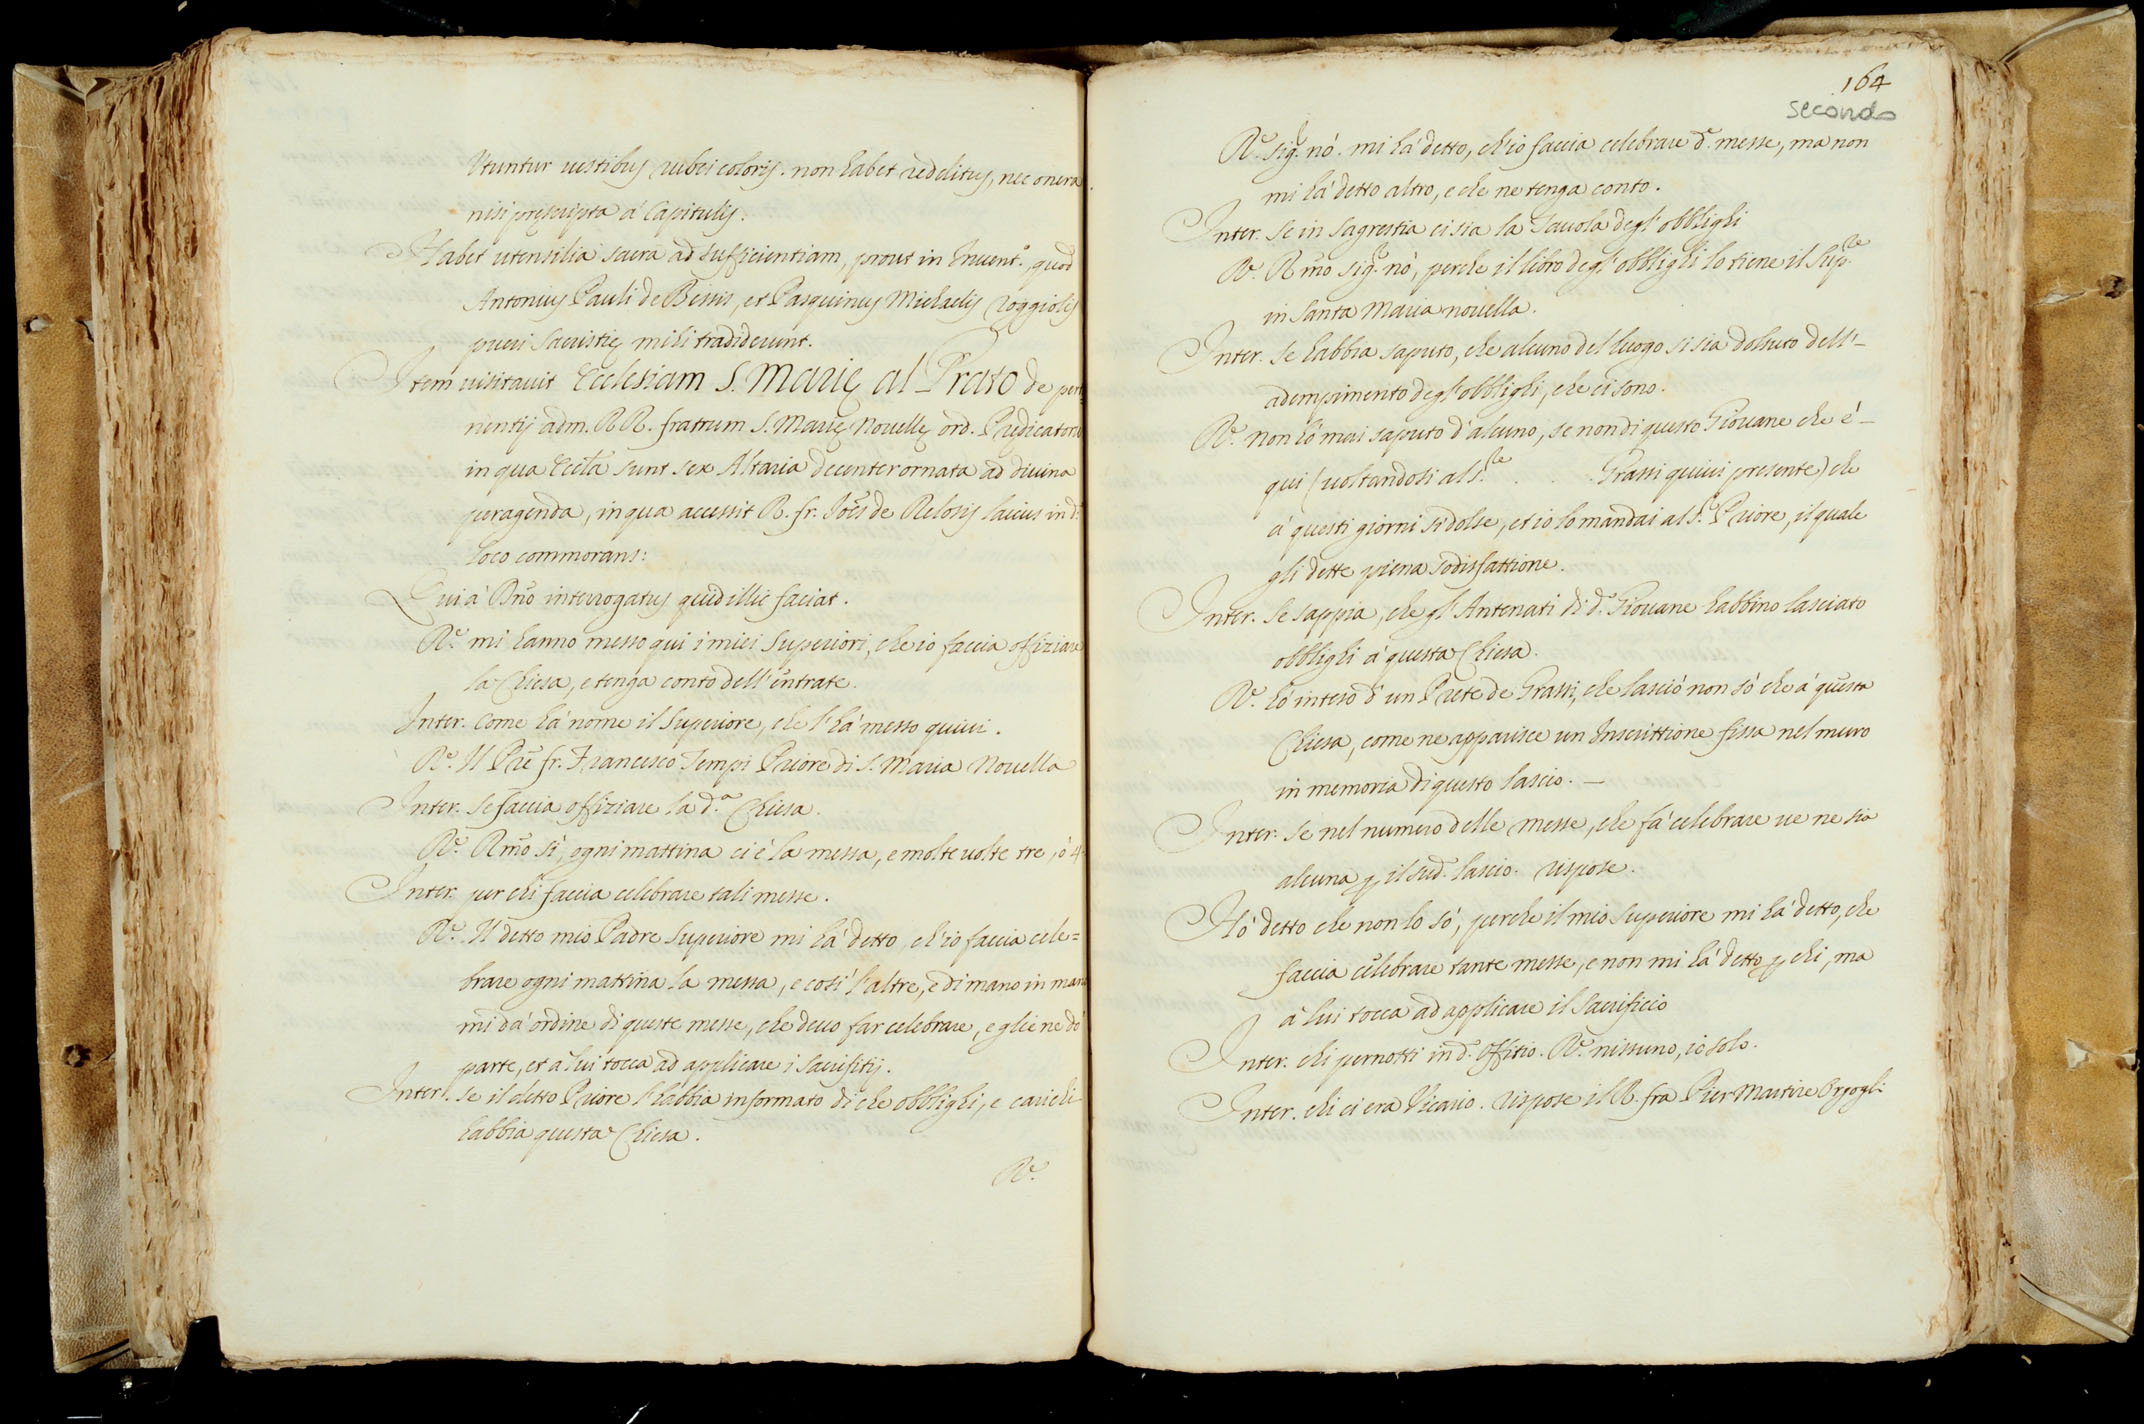 Utuntur vestibus rubei coloris. non habet redditus, nec onera
nisi pręscripta à Capitulis.
Habet utensilia sacra ad sufficientiam, prout in Invent.º, quod
Antonius Pauli de Bessis, et Pasquinus Michaelis Roggiolis
pueri sacristię mihi tradiderunt.
Item visitavit Ecclesiam S. Marię al Prato de perti
nentijs adm. RR. fratrum S. Marię Novellę ord. Prędicatorū
in qua Eccl̃a sunt sex Altaria decenter ornata ad divina
peragenda, in qua accessit R. fr. Joẽs de Relosis laicus in d.º
loco commorans:
Qui à R̃mo interrogatus quid illic faciat.
Rᵉ. mi hanno messo qui i miei Superiori, che io faccia offiziare
la Chiesa, e tenga conto dell'entrate.
Inter. Come hà nome il Superiore, che l'hà messo quivi.
Rᵉ. Il Prẽ fr. Francesco Tempi Priore di S. Maria Novella
Inter. se faccia offiziare la d.ª Chiesa.
Rᵉ. R̃mo sì, ogni mattina ci è la messa, e molte volte tre, ò 4.
Inter. per chi faccia celebrare tali messe.
Rᵉ. Il detto mio Padre Superiore mi hà detto, ch'io faccia cele=
brare ogni mattina la messa, e così l'altre, e di mano in mano
mi dà ordine di queste messe, che devo far celebrare, e gliene dò
parte, et à lui tocca ad applicare i sacrifitij.
Inter. se il detto Priore l'habbia informato di che obblighi, e carichi
habbia questa Chiesa.
Rᵉ.
164
secondo
Rᵉ. sig.ʳ nò. mi hà detto, ch'io faccia celebrare d.ᵉ messe, ma non
mi hà detto altro, e che ne tenga conto.
Inter. se in sagrestia ci sia la Tavola degl'obblighi
Rᵉ. R̃mo sig.ʳ nò, perche il libro degl'obblighi lo tiene il Sup.ʳᵉ
in Santa Maria novella.
Inter. se habbia saputo, che alcuno del luogo si sia doluto dell'-
adempimento degl'obblighi, che ci sono.
Rᵉ. non hò mai saputo d'alcuno, se non di questo Giovane che è -
qui (voltandosi al S.ʳᵉ . . . Grassi quivi presente) che
à questi giorni si dolse, et io lo mandai al P. Priore, il quale
gli dette piena sodisfattione.
Inter. se sappia, che gl'Antenati di d.º Giovane habbino lasciato
obblighi à questa Chiesa.
Rᵉ. hò inteso d'un Prete de Grassi, che lasciò non sò che à questa
Chiesa, come ne apparisce un Inscrittione fissa nel muro
in memoria di questo lascio. -
Inter. se nel numero delle messe, che fà celebrare ve ne sia
alcuna p il sud.º lascio. rispose.
Hò detto che non lo sò, perche il mio Superiore mi hà detto, che
faccia celebrare tante messe, e non mi hà detto p chi, ma
à lui tocca ad applicare il sacrificio
Inter. chi pernotti in d.º Offitio. Rᵉ. nissuno, io solo.
Inter. chi ci era Vicario. rispose il R. fra Pier Martire